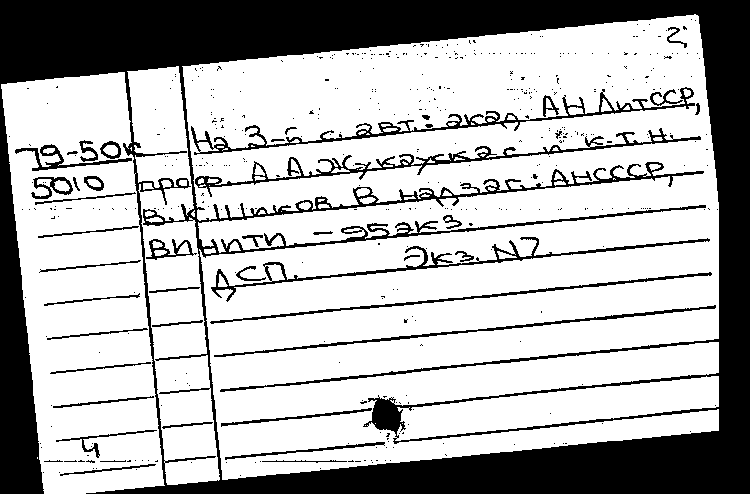 2
79-50к На 3-й с. авт.: акад. АН ЛитССР,
5010 проф. А.А.Жукаускас и к.т.н.
В.К.Шиков. В надзаг.: АНСССР,
ВИНИТИ. - 95экз.
ДСП. Экз. N7.
4